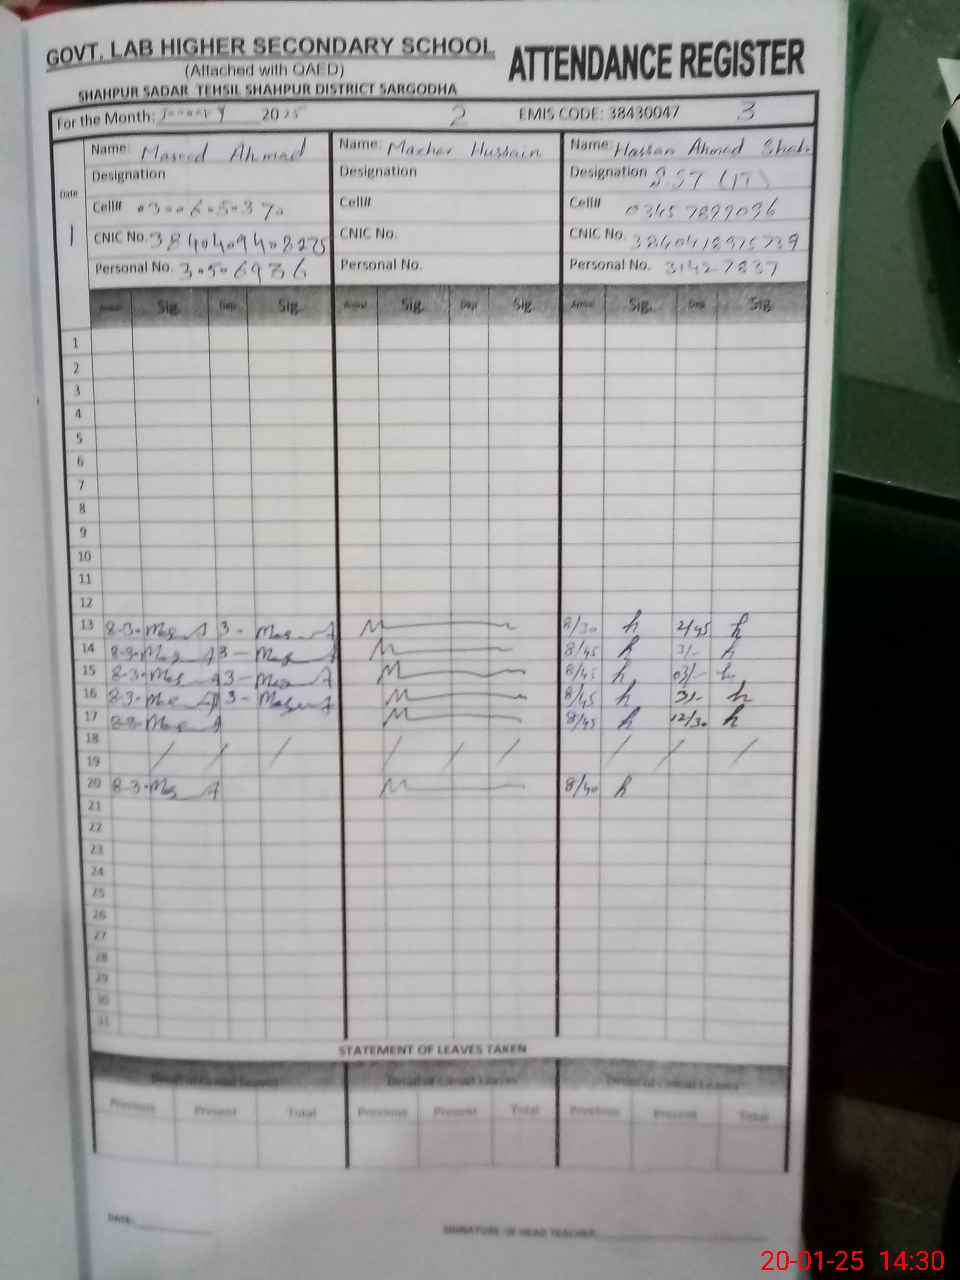 GOVT. LAB HIGHER SECONDARY SCHOOL
(Attached with QAED)
SHAHPUR SADAR TEHSIL SHAHPUR DISTRICT SARGODHA
ATTENDANCE REGISTER
For the Month: January 2025 2 EMIS CODE: 38430047 3
Date
1
Name: Masood Ahmad
Designation
Cell#
CNIC No.
Personal No.
Name: Mazhar Hussain
Designation
Cell#
CNIC No.
Personal No.
Name: Hassan Ahmed Shah
Designation S.ST (IT)
Cell# 03457899096
CNIC No.
Personal No. 31427837
Arrival Sig. Dep: Sig. Arrival Sig. Dep: Sig. Arrival Sig. Dep: Sig.
1
2
3
4
5
6
7
8
9
10
11
12
13 8-3- 3- 8/30 h 2/45 h
14 8-3- 3- 8/45 h 3/- h
15 8-3- 3- 8/45 h 03/- h
16 8-3- 3- 8/45 h 3/- h
17 8/45 h 12/30 h
18 / / / / / / / / /
19
20 8-3- 8/40 h
21
22
23
24
25
26
27
28
29
30
31
STATEMENT OF LEAVES TAKEN
Detail of Casual Leaves Detail of Casual Leaves Detail of Casual Leaves
Previous Present Total Previous Present Total Previous Present Total
DATE: SIGNATURE OF HEAD TEACHER
20-01-25 14:30